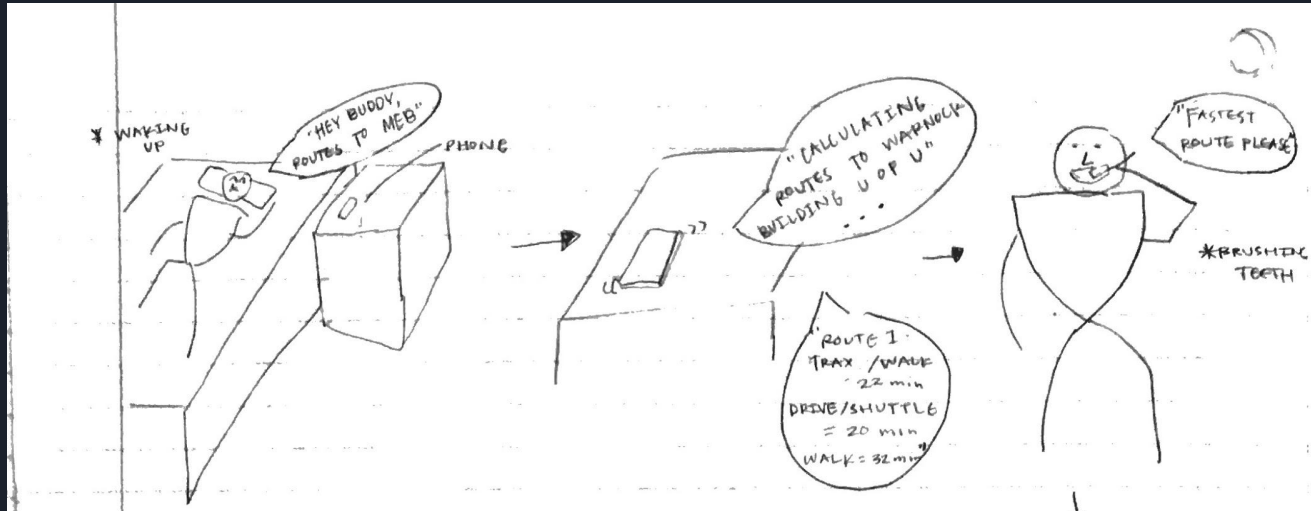 * WAKING
UP
"HEY BUDDY,
ROUTES TO MEB"
PHONE
"CALCULATING
ROUTES TO WARNOCK
BUILDING U OF U"
...
"ROUTE 1
TRAX /WALK
- 22 min
DRIVE/SHUTTLE
= 20 min
WALK = 32 min"
"FASTEST
ROUTE PLEASE"
*BRUSHING
TEETH